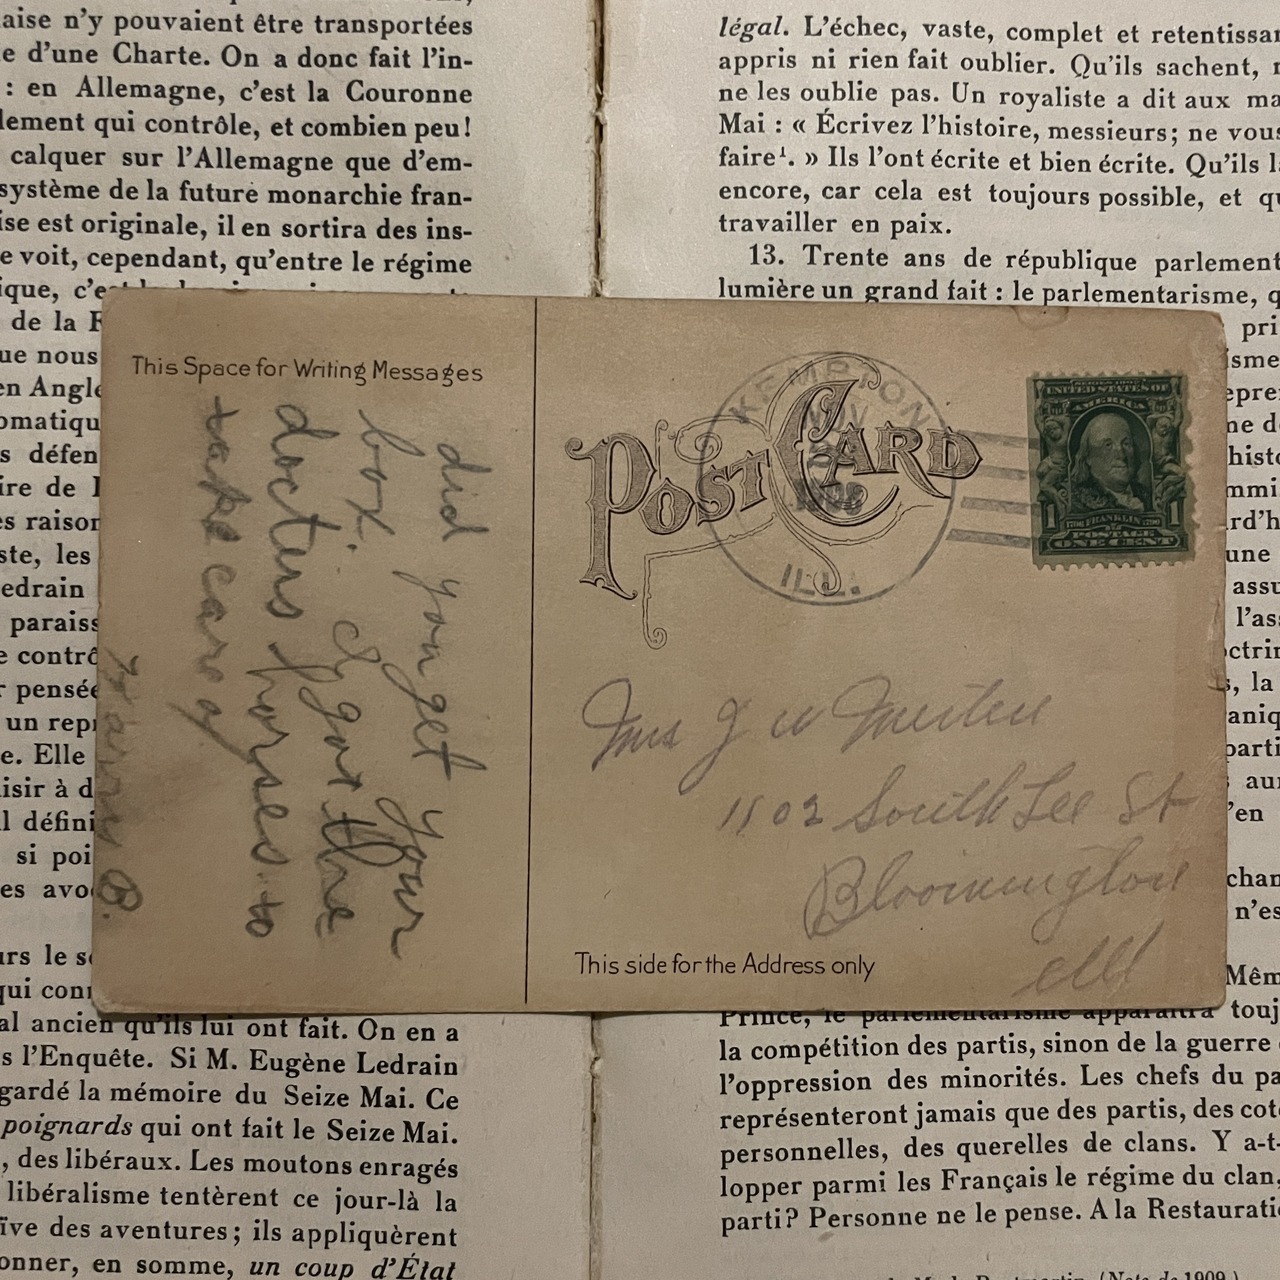 aise n'y pouvaient être transportées
e d'une Charte. On a donc fait l'in-
: en Allemagne, c'est la Couronne
lement qui contrôle, et combien peu!
calquer sur l'Allemagne que d'em-
système de la future monarchie fran-
ise est originale, il en sortira des ins-
e voit, cependant, qu'entre le régime
ique,
de la
ue nous
en Angle
omatiqu
s défen
ire de
es raison
ste, les
edrain
paraiss
e contrô
r pensée
un rep
e. Elle
isir à d
l défini
si poi
es avo
urs le s
qui con
al ancien qu'ils lui ont fait. On en a
s l'Enquête. Si M. Eugène Ledrain
gardé la mémoire du Seize Mai. Ce
poignards qui ont fait le Seize Mai.
, des libéraux. Les moutons enragés
libéralisme tentèrent ce jour-là la
ïve des aventures; ils appliquèrent
onner, en somme, un coup d'État
légal. L'échec, vaste, complet et retentissan
appris ni rien fait oublier. Qu'ils sachent,
ne les oublie pas. Un royaliste a dit aux ma
Mai : « Écrivez l'histoire, messieurs; ne vous
faire¹. » Ils l'ont écrite et bien écrite. Qu'ils l
encore, car cela est toujours possible, et qu
travailler en paix.
13. Trente ans de république parlement
lumière un grand fait : le parlementarisme, q
pri
isme
epré
ne d
histo
mmi
rd'h
une
assu
l'ass
octrin
s, la
aniq
parti
aur
'en
chan
n'es
Mêm
Prince, le parlementarisme apparaîtra touj
la compétition des partis, sinon de la guerre
l'oppression des minorités. Les chefs du pa
représenteront jamais que des partis, des cote
personnelles, des querelles de clans. Y a-t-
lopper parmi les Français le régime du clan,
parti? Personne ne le pense. A la Restauratio
(Note de 1909.)
This Space for Writing Messages
did you get your
box. I got the
docters horses to
take care of
Harry B.
POST CARD
KEMPTON
NOV
1908
ILL.
SERIES 1902
UNITED STATES OF
AMERICA
1 1706 FRANKLIN 1790 1
POSTAGE
ONE CENT
Mrs J W
1102 South Lee St
Bloomington
Ill
This side for the Address only